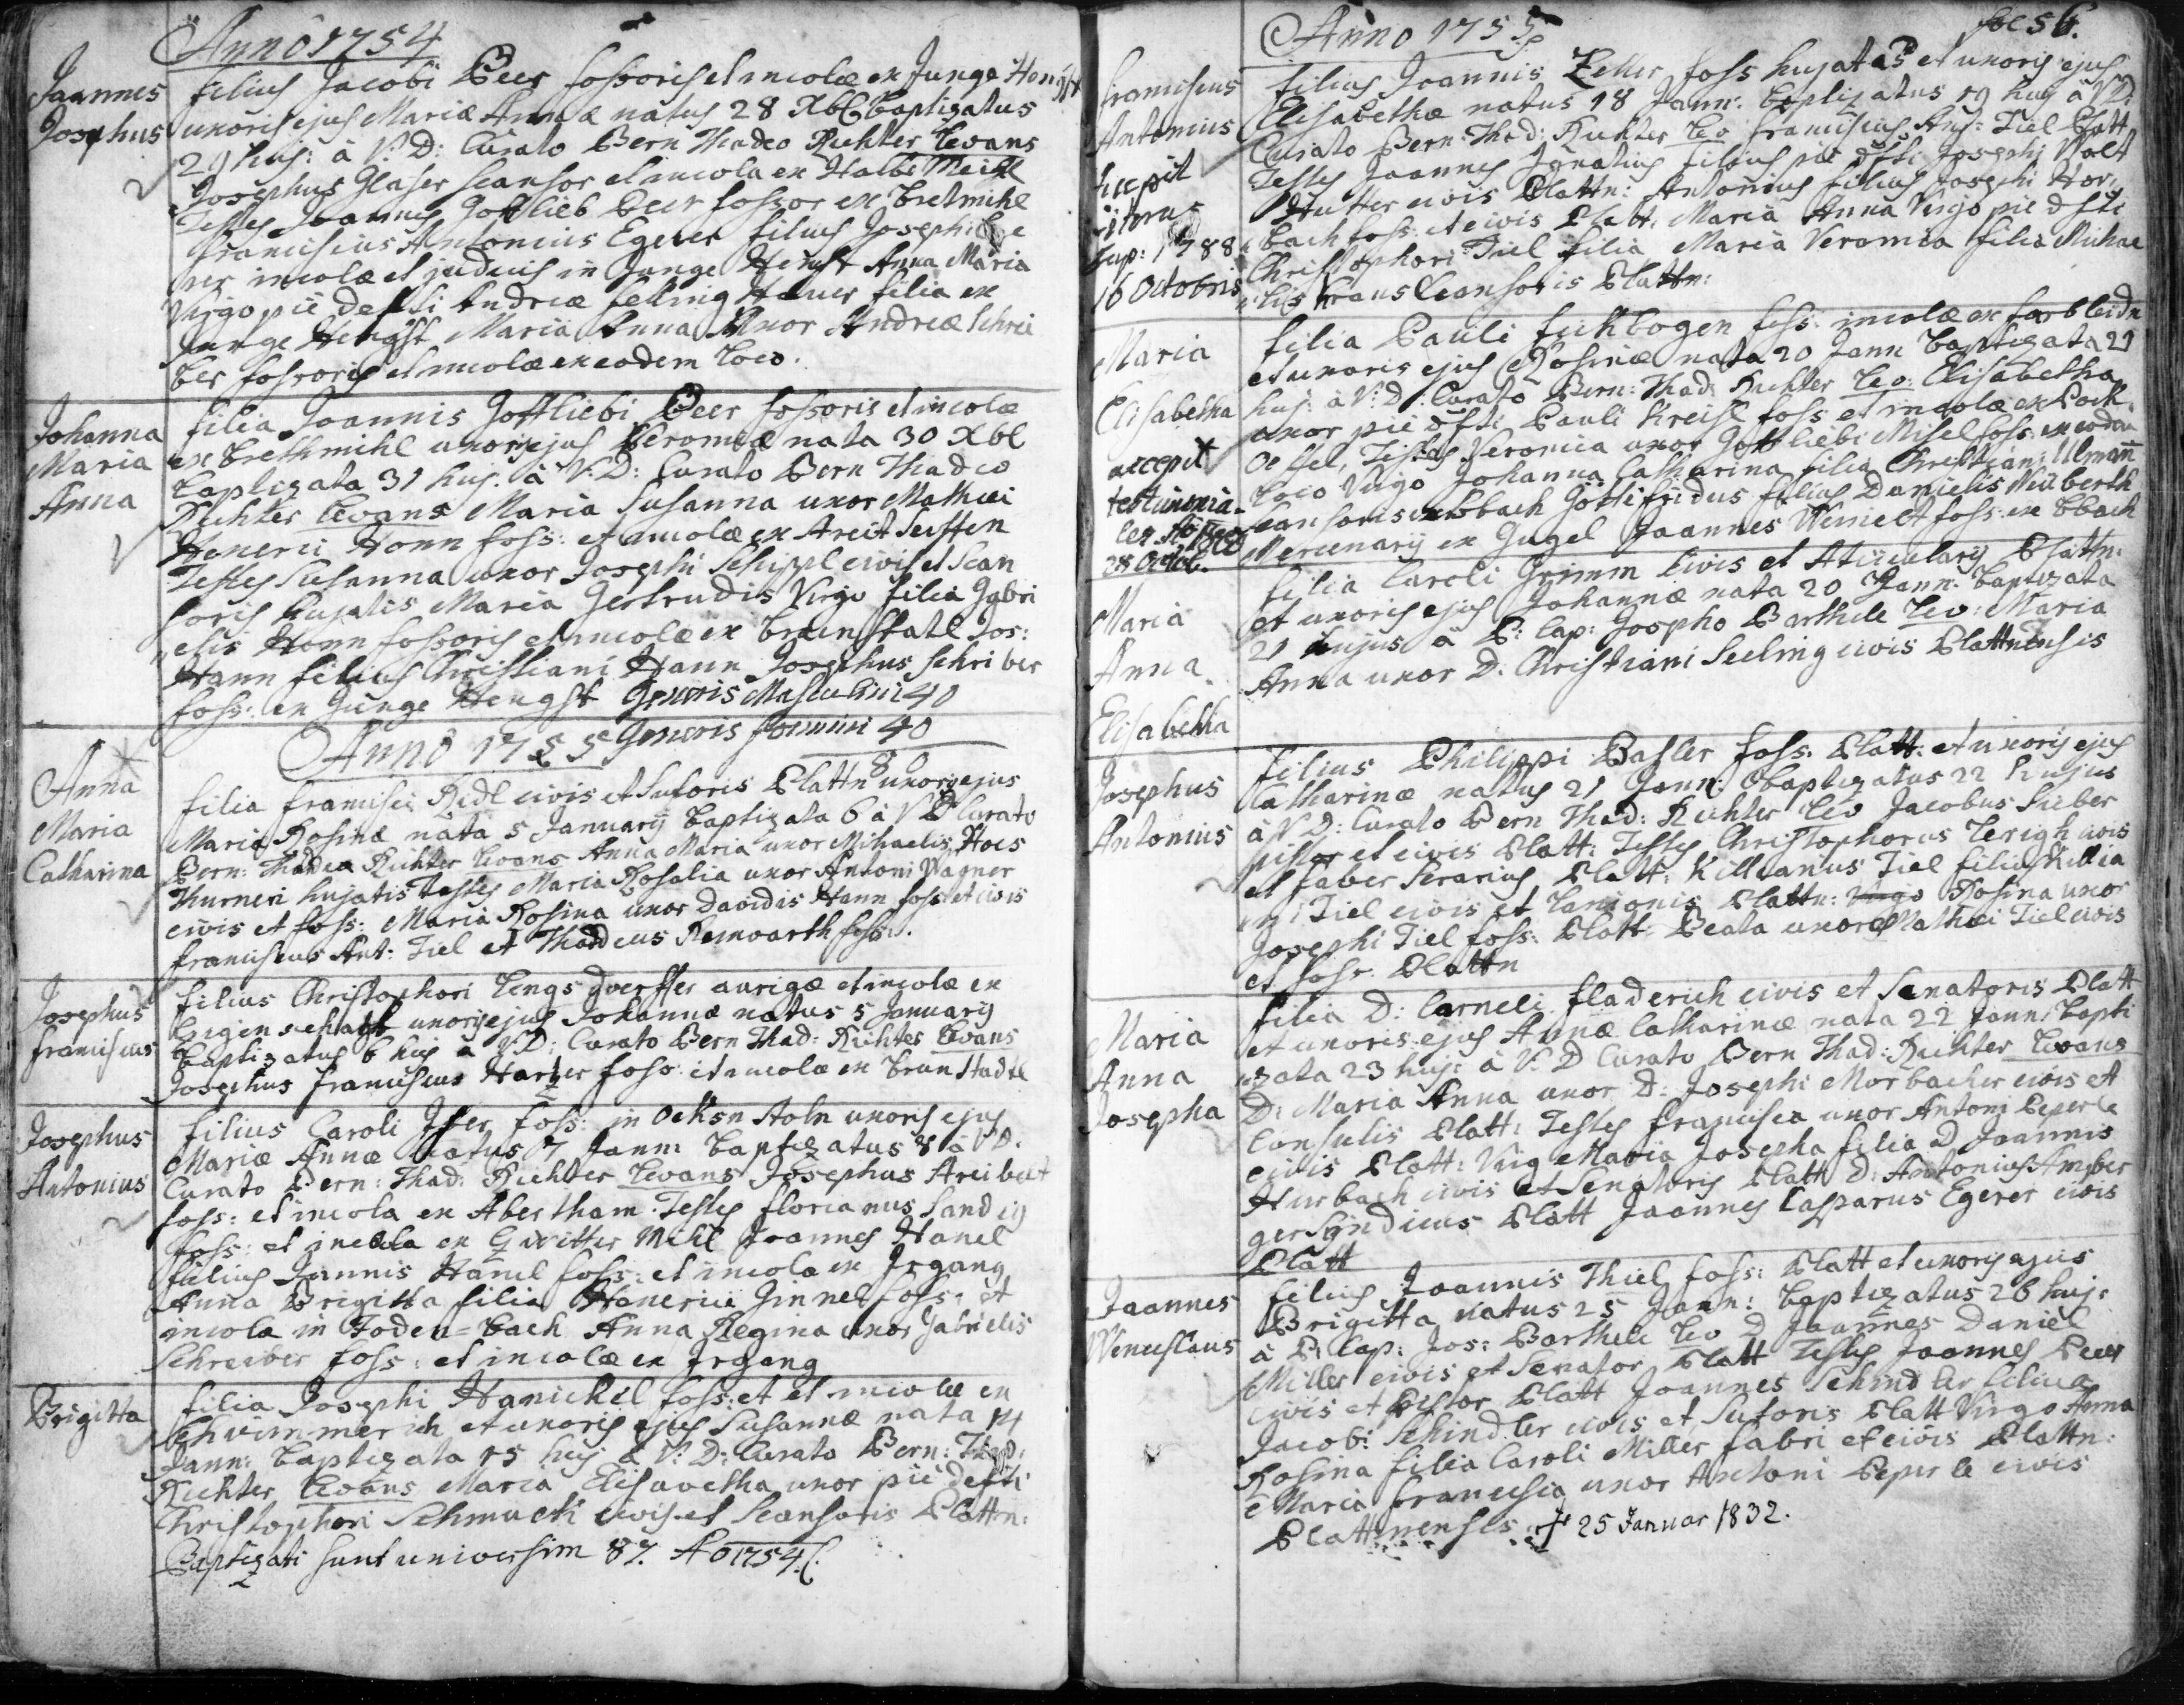 Anno 1754
Joannes
Josephus
filius Jacobi Beer fossoris et incolæ ex Junge Hengst
uxoris ejus Mariæ Annæ natus 28 Xbl baptizatus
29 huj: à V: D: Curato Bern Thadeo Richter levans
Josephus Glaser scansor et incola ex Halbe Meihl
Testes Joannes Gottlieb Beer fossor ex Bretmihl
Franciscus Antonius Egerer filius Josephi Ege
rer incolæ et judicis in Junge Hengst Anna Maria
Virgo pie defti Andreæ Felling Hauer filia ex
Junge Hengst Maria Anna Uxor Andreæ Schrei
ber fossoris et incolæ ex eodem Loco.
Johanna
Maria
Anna
filia Joannis Gottliebi Beer fossoris et incolæ
ex Brethmihl uxoris ejus Veronicæ nata 30 Xbl
baptizata 31 huj. à V: D: Curato Bern Thadeo
Richter levans Maria Susanna uxor Mathæi
Honerii Honn foss: et incolæ ex Streit Seiffen
Testes Susanna uxor Josephi Schippl civis et Scan
soris hujatis Maria Gertrudis Virgo filia Gabri
elis Honn fossoris et incolæ ex Braunstatl Jos:
Hann filius Christiani Hann Josephus Schriber
foss: ex Junge Hengst Generis Masculini 40
Generis foeminini 40
80
Anno 1755
Anna
Maria
Catharina
filia Francisci Ridl civis et Sutoris Plattn uxoris ejus
Mariæ Rosinæ nata 5 Januarij baptizata 6 à V D Curato
Bern: Thadea Richter levans Anna Maria uxor Mihaelis Hoes
Thurneri hujatis Testes Maria Rosalia uxor Antoni Wagner
civis et foss: Maria Rosina uxor Davidis Hann foss et civis
Franciscus Ant: Tiel et Thaddeus Reinwarth foss:.
Josephus
Franciscus
filius Christophori Lengsdoerffer aurigæ et incolæ ex
uxoris ejus Johannæ natus 5 Januarij
baptizatus 6 huj à V: D: Curato Bern Thad: Richter levans
Josephus Franciscus Harzer foss: et incolæ ex Braun Stadtl
Josephus
Antonius
filius Caroli foss: in Ochsn Stoln uxoris ejus
Mariæ Annæ natus 7 Jann: baptizatus 8 à V D:
Curato Bern: Thad: Richter levans Josephus Streibelt
foss: et incola ex Abertham Testes Florianus Sandig
foss: et incola ex Zwitter Mihl Joannes Hanel
filius Joannis Hanel foss: et incola ex Irgang
Anna Brigitta filia Honerii Ginnel foss: et
incola in Todten=bach Anna Regina uxor Gabrielis
Schreiber foss: et incolæ ex Irgang
Brigitta
filia Josephi Hanickel foss: et et incolæ ex
Schwimmerich et uxoris ejus Susannæ nata 14
Jann: baptizata 15 huj à V: D: Curato Bern: Thad:
Richter levans Maria Elisavetha uxor pie defti
Christophori Schmuck civis et Scansoris Plattn:
Baptizati sunt universim 87. Ao 1754.
Anno 1755
fol 56.
Franciscus
Antonius
accepit
literas
Sup: 1788
16 Octobris
filius Joannis Zeller foss hujatis et uxoris ejus
Elisabethæ natus 18 Jann: baptizatus 19 huj à V: D:
Curato Bern: Thad: Richter lev Franciscus Ant: Tiel Platt
Testes Joannes Ignatius filius pie dfti Josephi Wolf
Hutter civis Plattn: Antonius filius Josephi Hor-
bach foss. et civis Platt, Maria Anna Virgo pie dfti
Christophori Tiel filia Maria Veronica filia Micha
elis Kraus Scansoris Plattn:
Maria
Elisabetha
accepit
testimonia-
les
28 Octob.
filia Pauli Fickbogen foss: incolæ ex Farbleidn
et uxoris ejus Rosinæ nata 20 Jann baptizata 21
huj: à V: D: Curato Bern: Thad: Richter lev: Elisabetha
uxor pie dfti Pauli Kreisl foss et incolæ ex Pock
Oefel, Testes Veronica uxor Gottliebi Misel foss: ex eodem
Loco Virgo Johanna Catharina filia Christian: Ulmann
Scansoris ex bach Gottfridus filius Danielis Neüberth
Mercenarij ex Gugel Joannes Wenzelt foss. ex bbach
Maria
Anna
Elisabetha
filia Caroli Grimm civis et Plattn:
et uxoris ejus Johannæ nata 20 Jann: baptizata
21 hujus à P: Cap: Josepho Barthele Lev: Maria
Anna uxor D: Christiani Seeling civis Plattnensis
Josephus
Antonius
filius Philippi Basler foss: Platt: et uxoris ejus
Catharinæ natus 21 Jann: baptizatus 22 hujus
à V. D: Curato Bern Thad: Richter Lev Jacobus Sieber
pistor et civis Platt: Testes Christophorus Lerigh civis
et faber serarius Platt: Killianus Tiel filius Killia
ni Tiel civis et Lanionis Plattn: Virgo Rosina uxor
Josephi Tiel foss: Platt: Beata uxor Mathæi Tiel civis
et foss. Plattn
Maria
Anna
Josepha
filia D: Carneli Fladerich civis et Senatoris Platt
et uxoris ejus Annæ Catharinæ nata 22 Jann: bapti
zata 23 huj: à V: D Curato Bern Thad: Richter levans
D: Maria Anna uxor D: Josephi Morbacher civis et
Consulis Platt: Testes Francisca uxor Antoni Peperle
civis Platt: Virg Maria Josepha filia D Joannis
Hurbach civis et Senatoris Platt D: Antonius Amber
ger Syndicus Platt Joannes Casparus Egerer civis
Platt
Joannes
Wenceslaus
filius Joannis Thiel foss: Platt et uxoris ejus
Brigitta natus 25 Jann: baptizatus 26 huj:
à P: Cap: Jos: Barthele lev D Joannes Daniel
Miller civis et Senator Platt Testes Joannes Beer
civis et Pistor Platt Joannes Schindler filius
Jacobi Schindler civis et Sutoris Platt Virgo Anna
Rosina filia Caroli Miller fabri et civis Plattn:
Maria Francisca uxor Antoni Peperle civis
Plattnensis. † 25 Januar 1832.